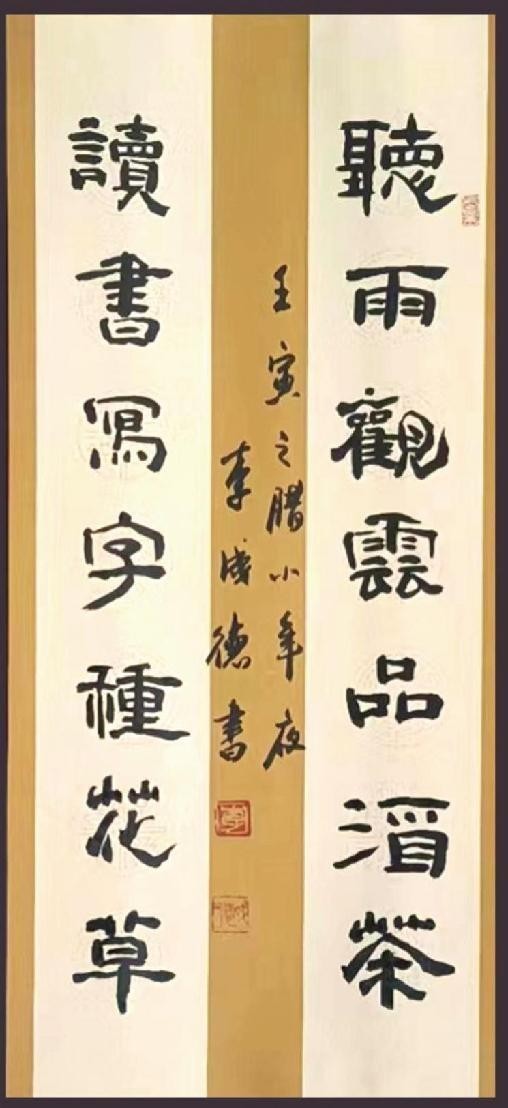 聽雨觀雲品酒茶
讀書寫字種花草
壬寅之腊小年夜
李成德書